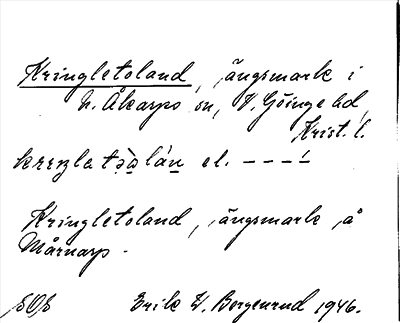 Kringletoland, ängsmark i
N. Åkarps sn, V. Göinge hd,
Krist. l.
el. – – – –́
Kringletoland, ängsmark å
Mårnarp.
Erik W. Bergenrud 1946.